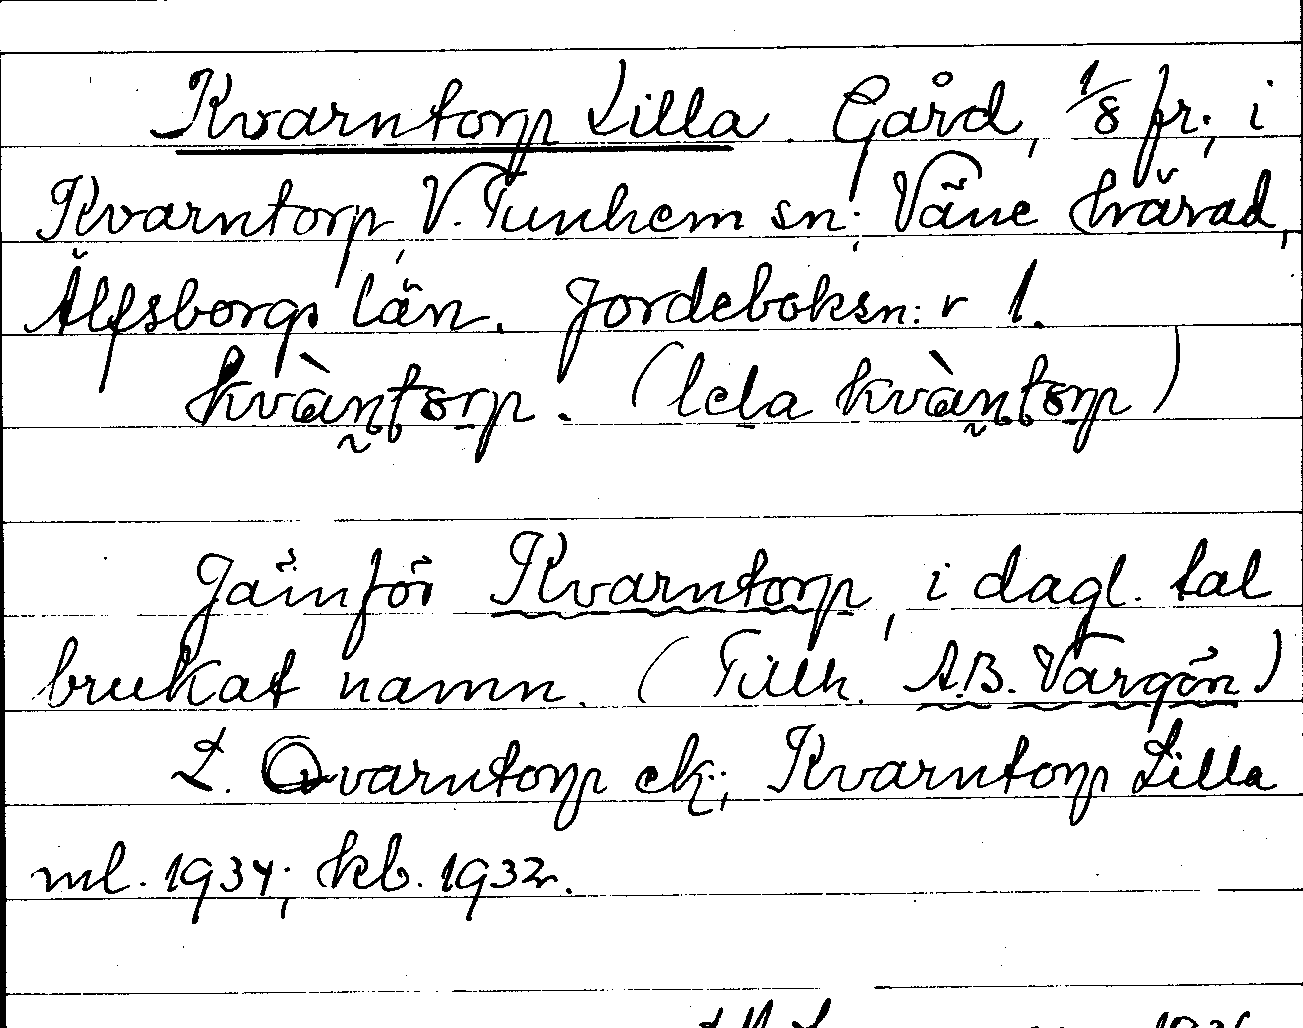 Kvarntorp Lilla. Gård, 1/8 fr., i
Kvarntorp, V. Tunhem sn; Väne härad,
Älfsborgs län. Jordeboksn:r 1.
kvàntorp. (lela kvàntorp)
Jämför Kvarntorp, i dagl. tal
brukat namn. (Tillh. A.B. Vargön)
L. Qvarntorp ek.; Kvarntorp Lilla
ml. 1934; kb. 1932.